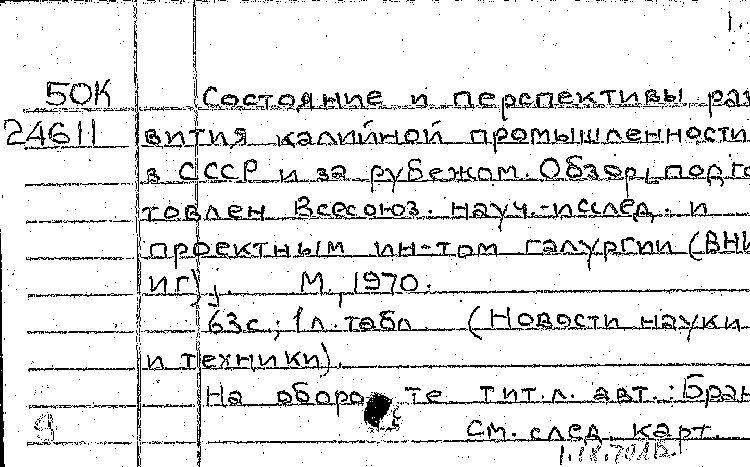 1.
50К Состояние и перспективы раз
24611 вития калийной промышленности
в СССР и за рубежом. Обзор, подго
товлен Всесоюз. науч.-исслед. и
проектным ин-том галургии (ВНИ
ИГ). М., 1970.
63с.; 1л. табл (Новости науки
и техники).
На оборо те тит. л. авт.: Бран
См. след. карт.